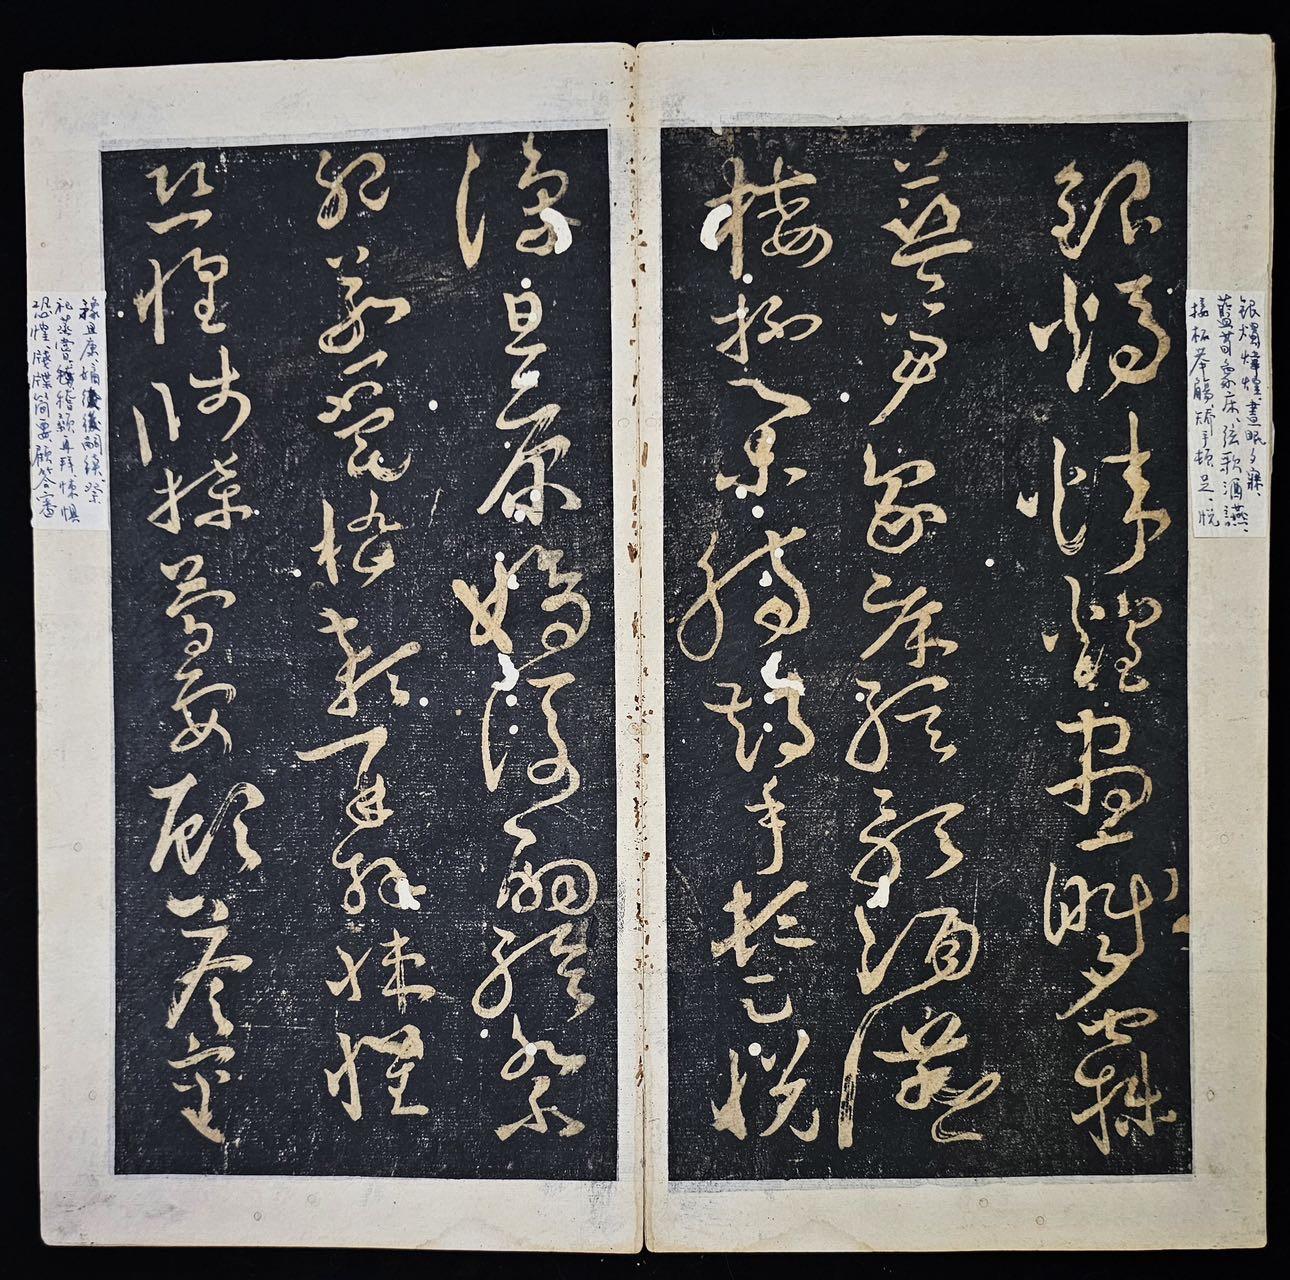 銀燭煒煌、晝眠夕寐、
藍筍象床、弦歌酒讌、
接杯举觴、矯手頓足、悅
銀燭煒煌晝眠夕寐
藍筍象床弦歌酒讌
接杯舉觴矯手頓足悅
豫且康嫡後嗣續祭
祀蒸嘗稽顙再拜悚懼
恐惶牋牒簡要顧答審
豫且康、嫡後嗣續、祭
祀蒸嘗、稽顙再拜悚懼
恐惶、牋牒簡要、顧答審